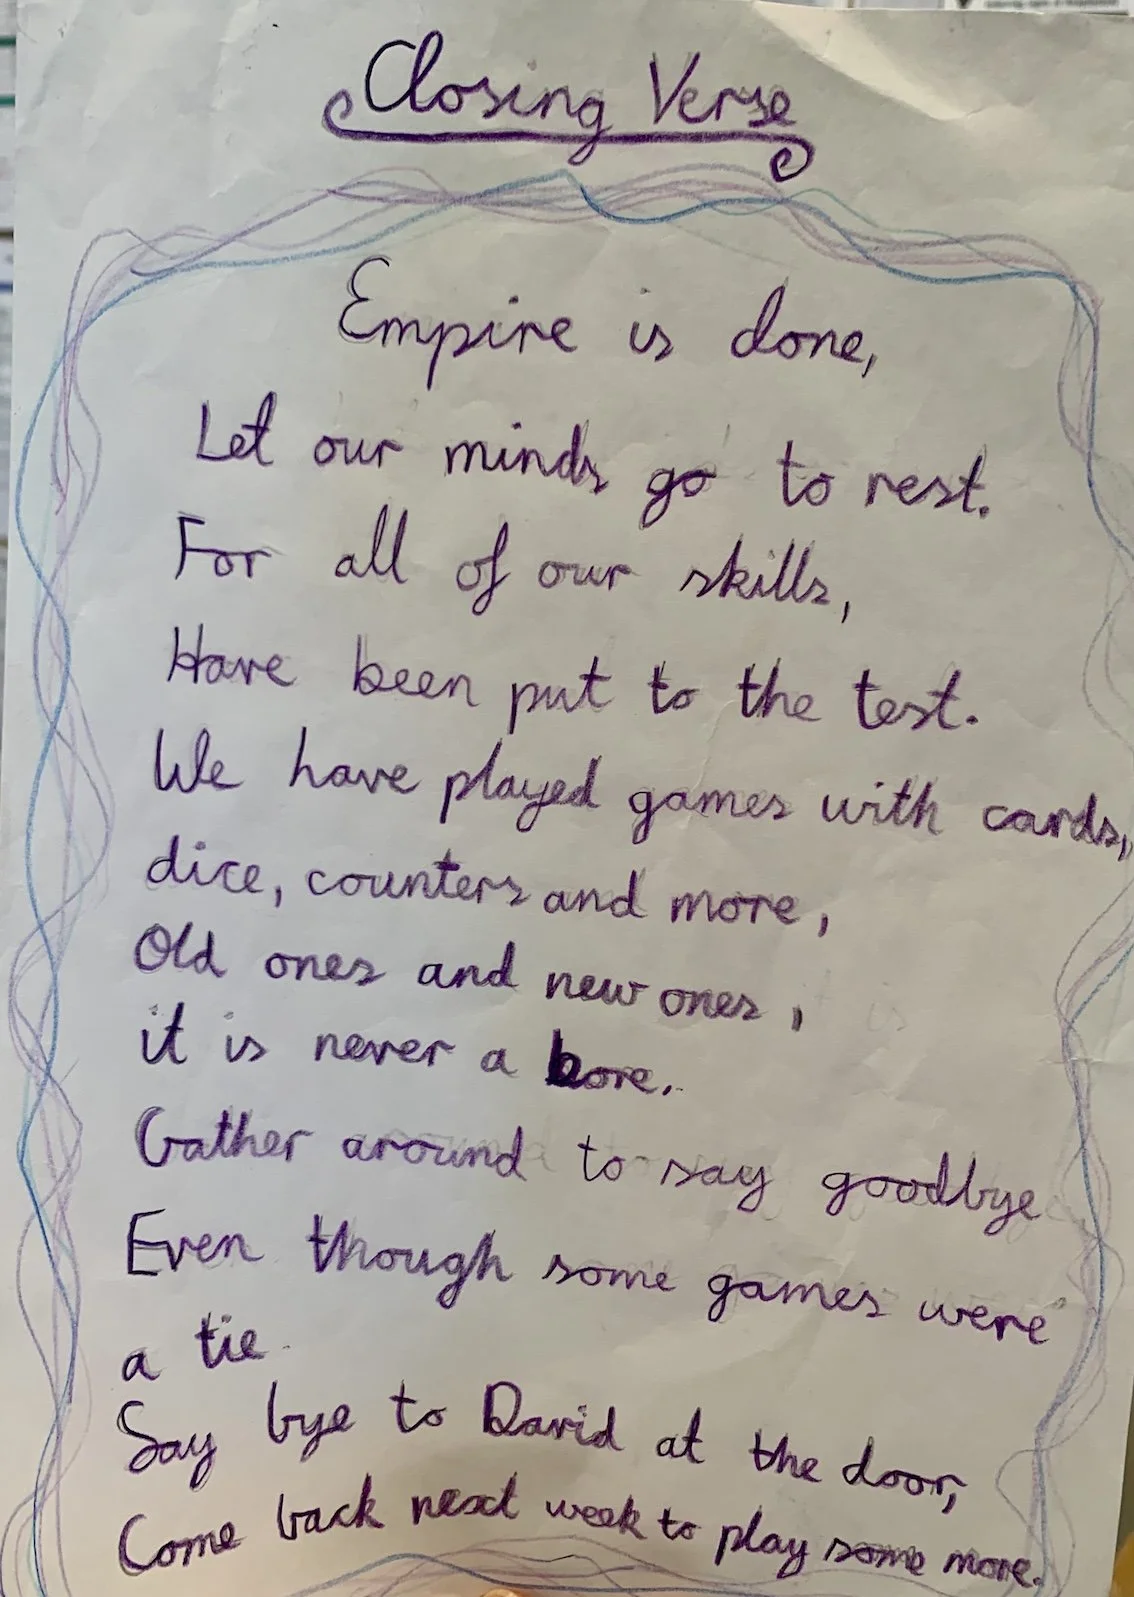 Closing Verse
Empire is done,
Let our minds go to rest.
For all of our skills,
Have been put to the test.
We have played games with cards,
dice, counters and more,
Old ones and new ones,
it is never a bore.
Gather around to say goodbye
Even though some games were
a tie.
Say bye to David at the door,
Come back next week to play some more.